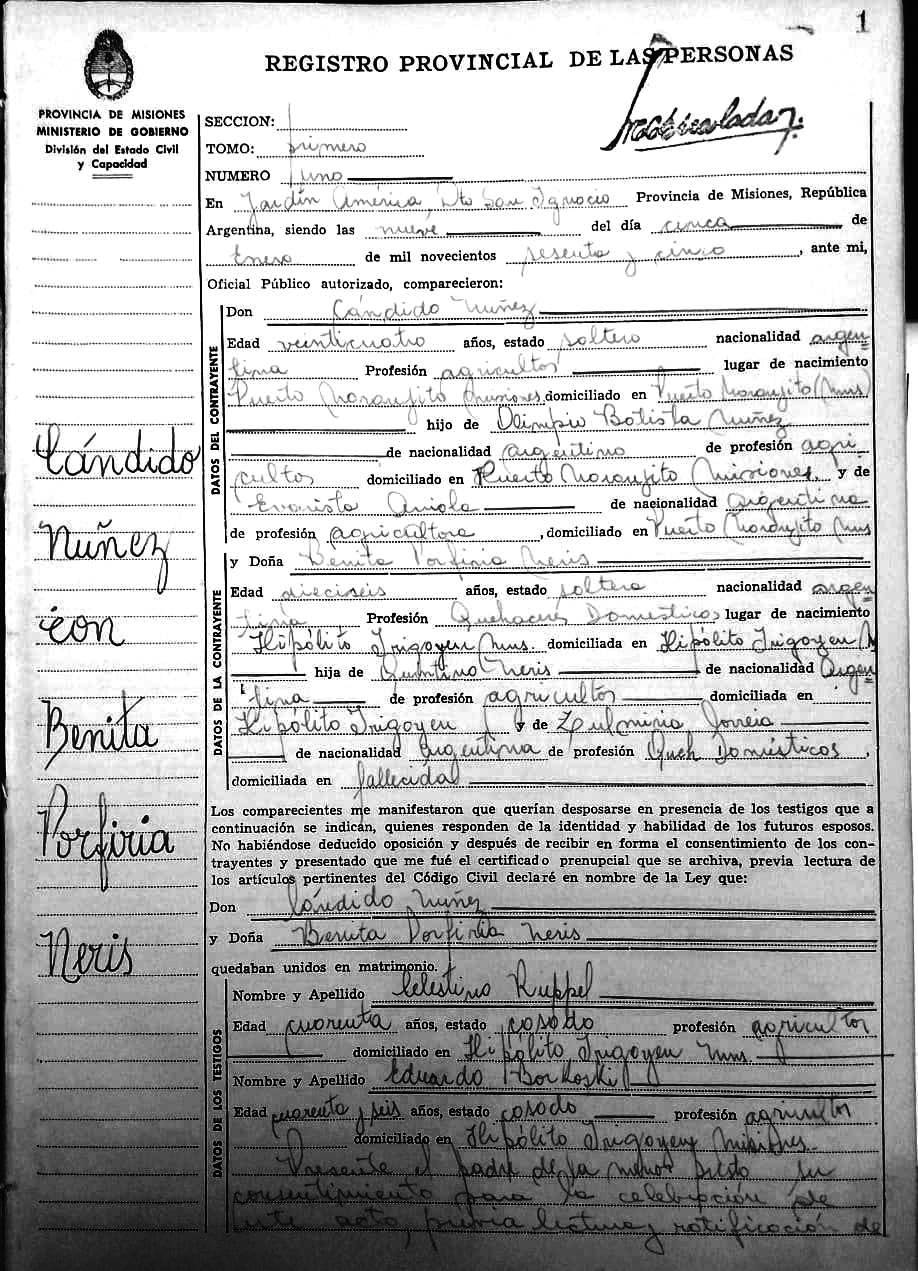 1
REGISTRO PROVINCIAL DE LAS PERSONAS
PROVINCIA DE MISIONES
MINISTERIO DE GOBIERNO
División del Estado Civil
y Capacidad
SECCION:
TOMO: primero
NUMERO uno
En Jardín América, Dto San Ignacio Provincia de Misiones, República
Argentina, siendo las nueve del día cinco de
Enero de mil novecientos sesenta y cinco, ante mi,
Oficial Público autorizado, comparecieron:
DATOS DEL CONTRAYENTE
Don Cándido Nuñez
Edad veinticuatro años, estado soltero nacionalidad argen
tina Profesión agricultor lugar de nacimiento
Puerto Naranjito Misiones domiciliado en Puerto Naranjito (Mnes)
hijo de Olimpio Batista Nuñez
de nacionalidad argentino de profesión agri
cultor domiciliado en Puerto Naranjito Misiones, y de
Evarista de nacionalidad argentina
de profesión agricultora, domiciliado en Puerto Naranjito Mnes
DATOS DE LA CONTRAYENTE
y Doña Benita Porfiria Neris
Edad dieciseis años, estado soltera nacionalidad argen
tina Profesión Quehaceres Domesticos lugar de nacimiento
Hipólito Irigoyen Mnes. domiciliada en Hipólito Irigoyen M
hija de Quintino Neris de nacionalidad Argen
tina de profesión agricultor domiciliada en
Hipólito Irigoyen y de Zulmiria Correia
de nacionalidad argentina de profesión Queh Domésticos,
domiciliada en fallecida
Los comparecientes me manifestaron que querían desposarse en presencia de los testigos que a
continuación se indican, quienes responden de la identidad y habilidad de los futuros esposos.
No habiéndose deducido oposición y después de recibir en forma el consentimiento de los con-
trayentes y presentado que me fué el certificado prenupcial que se archiva, previa lectura de
los artículos pertinentes del Código Civil declaré en nombre de la Ley que:
Don Cándido Nuñez
y Doña Benita Porfiria Neris
quedaban unidos en matrimonio.
DATOS DE LOS TESTIGOS
Nombre y Apellido Celestino Ruppel
Edad cuarenta años, estado casado profesión agricultor
domiciliado en Hipólito Irigoyen Mnes.
Nombre y Apellido Eduardo Borkoski
Edad cuarenta y seis años, estado casado profesión agricultor
domiciliado en Hipólito Irigoyen Misiones.
Presente el padre de la menor presta su
consentimiento para la celebración de
este acto, previa lectura y ratificación de
Cándido
Nuñez
con
Benita
Porfiria
Neris